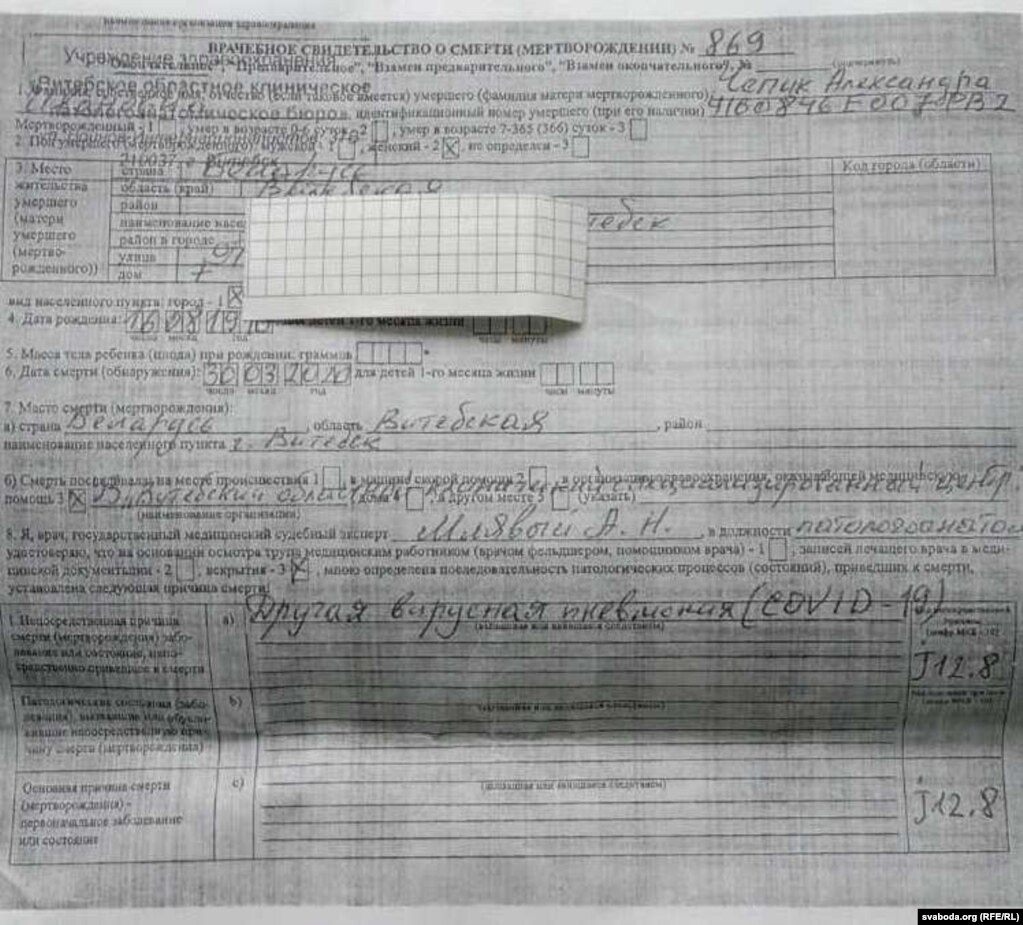 наименование организации здравоохранения
Учреждение здравоохранения
ВРАЧЕБНОЕ СВИДЕТЕЛЬСТВО О СМЕРТИ (МЕРТВОРОЖДЕНИИ) № 869
"Предварительное", "Взамен предварительного", "Взамен окончательного", №
(подчеркнуть)
«Витебское областное клиническое
отчество (если таковое имеется) умершего (фамилия матери мертворожденного) Чепик Александра
патологоанатомическое бюро», идентификационный номер умершего (при его наличии)
Мертворожденный - 1, умер в возрасте 0-6 суток - 2, умер в возрасте 7-365 (366) суток - 3
2. Пол умершего (мертворожденного): мужской - 1, женский - 2 X, не определен - 3
210037, г. Витебск
3. Место жительства умершего (матери умершего (мертворожденного))
Код города (области)
страна Беларусь
область (край) Витебская
район
наименование насе тебск
район в городе
улица
дом 7
вид населенного пункта: город - 1 X
4. Дата рождения: 16 08 19 для детей 1-го месяца жизни
число месяц год часы минуты
5. Масса тела ребенка (плода) при рождении: граммов
6. Дата смерти (обнаружения): 30 03 2020 для детей 1-го месяца жизни
число месяц год часы минуты
7. Место смерти (мертворождения):
а) страна Беларусь, область Витебская, район
наименование населенного пункта г. Витебск
б) Смерть последовала: на месте происшествия 1, в машине скорой помощи 2, в организации здравоохранения, оказывающей медицинскую
помощь 3 X Витебский специализированный центр, дома 4, в другом месте 5 (указать)
(наименование организации)
8. Я, врач, государственный медицинский судебный эксперт Млявый А. Н., в должности патологоанатом
удостоверяю, что на основании осмотра трупа медицинским работником (врачом фельдшером, помощником врача) - 1, записей лечащего врача в меди-
цинской документации - 2, вскрытия - 3 X, мною определена последовательность патологических процессов (состояний), приведших к смерти,
установлена следующая причина смерти:
I. Непосредственная причина смерти (мертворождения) заболевание или состояние, непосредственно приведшее к смерти
а) Другая вирусная пневмония (COVID-19)
(вызвавшая или явившаяся следствием)
J12.8
Патологические состояния (заболевания), вызвавшие или обусловившие непосредственную причину смерти (мертворождения)
b)
(вызвавшая или явившаяся следствием)
Основная причина смерти (мертворождения) - первоначальное заболевание или состояние
c)
(вызвавшая или явившаяся следствием)
J12.8
svaboda.org (RFE/RL)